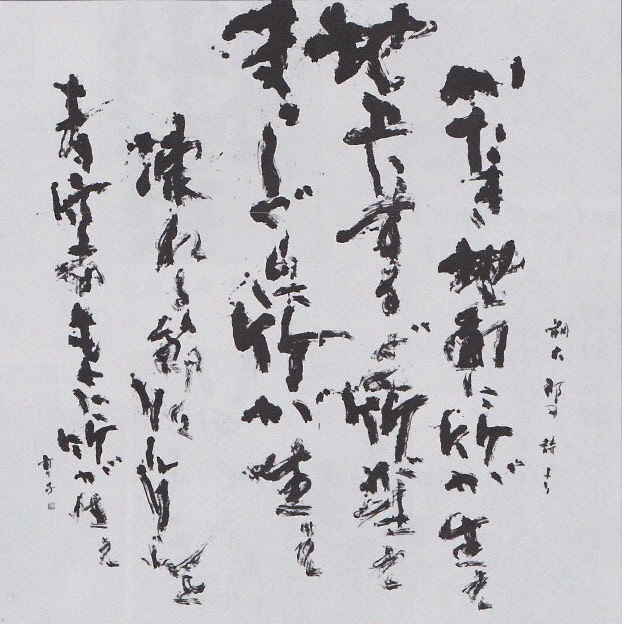 朔太郎の詩より
かたき地面に竹が生え
地上にするどく竹が生え
まっしぐらに竹が生え
凍れる節々りんりんと
青空のもとに竹が生え